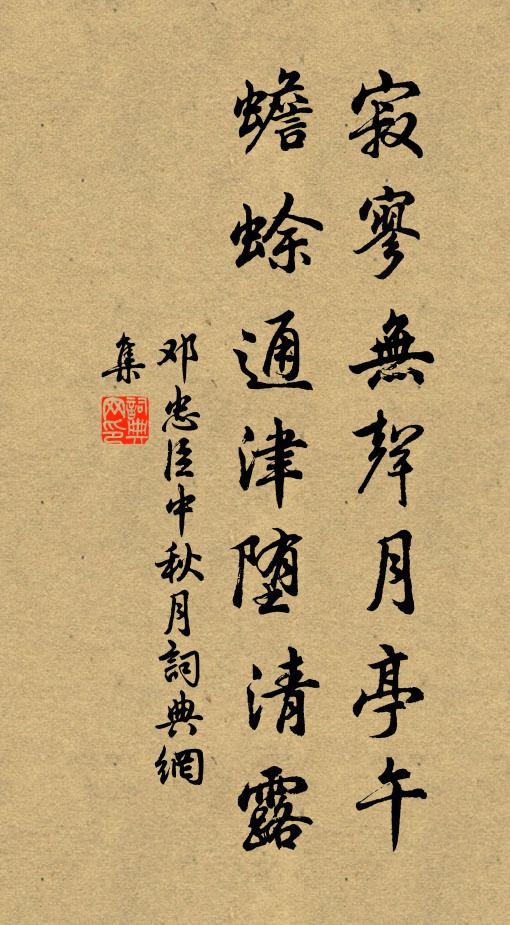 寂寥無聲月亭午
蟾蜍通津堕清露
邓忠臣中秋月詞典網
集
詞典
网印